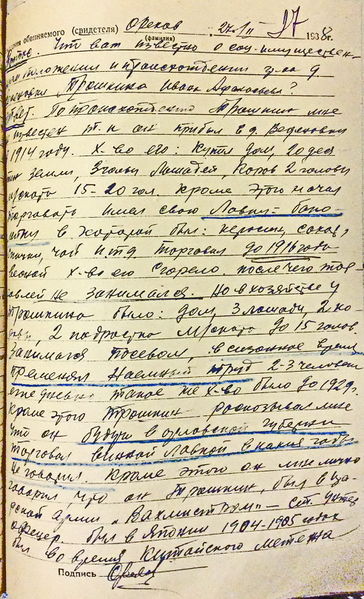 обвиняемого (свидетеля) Орехов 24/II 1938 г.
(фамилия)
Что вам известно о соц. имуществен
положении и происхождении гр-на д.
Трошкина Ивана
По происхождению Трошкин мне
т.к. он прибыл в д.
1914 году. Х-во его: купил дом, 20 деся
земли, лошадей, коров 2 головы
15-20 гол. кроме этого начал
торговать имел свою Лавку-
в которой был: керосин, сахар,
чай и т.д. торговал до 1916 года
х-во его сгорело, после чего тор
не занимался. Но в хозяйстве у
Трошкина было: дом, 3 лошади, 2 ко
2 подростка до 15 голов
занимался посевом, в сезонное время
применял наемный труд 2-3 человек
ежедневно такое же х-во было до 1929 г.
Кроме этого Трошкин рассказывал мне
что он будучи в орловской губернии
торговал винной лавкой в какие годы
не говорил. Кроме этого он мне лично
говорил что он Трошкин, был в ца
рской армии "Вахмистром" - ст. унтер
офицер, был в Японии 1904-1905 годах
был во время Китайского мятежа
Подпись